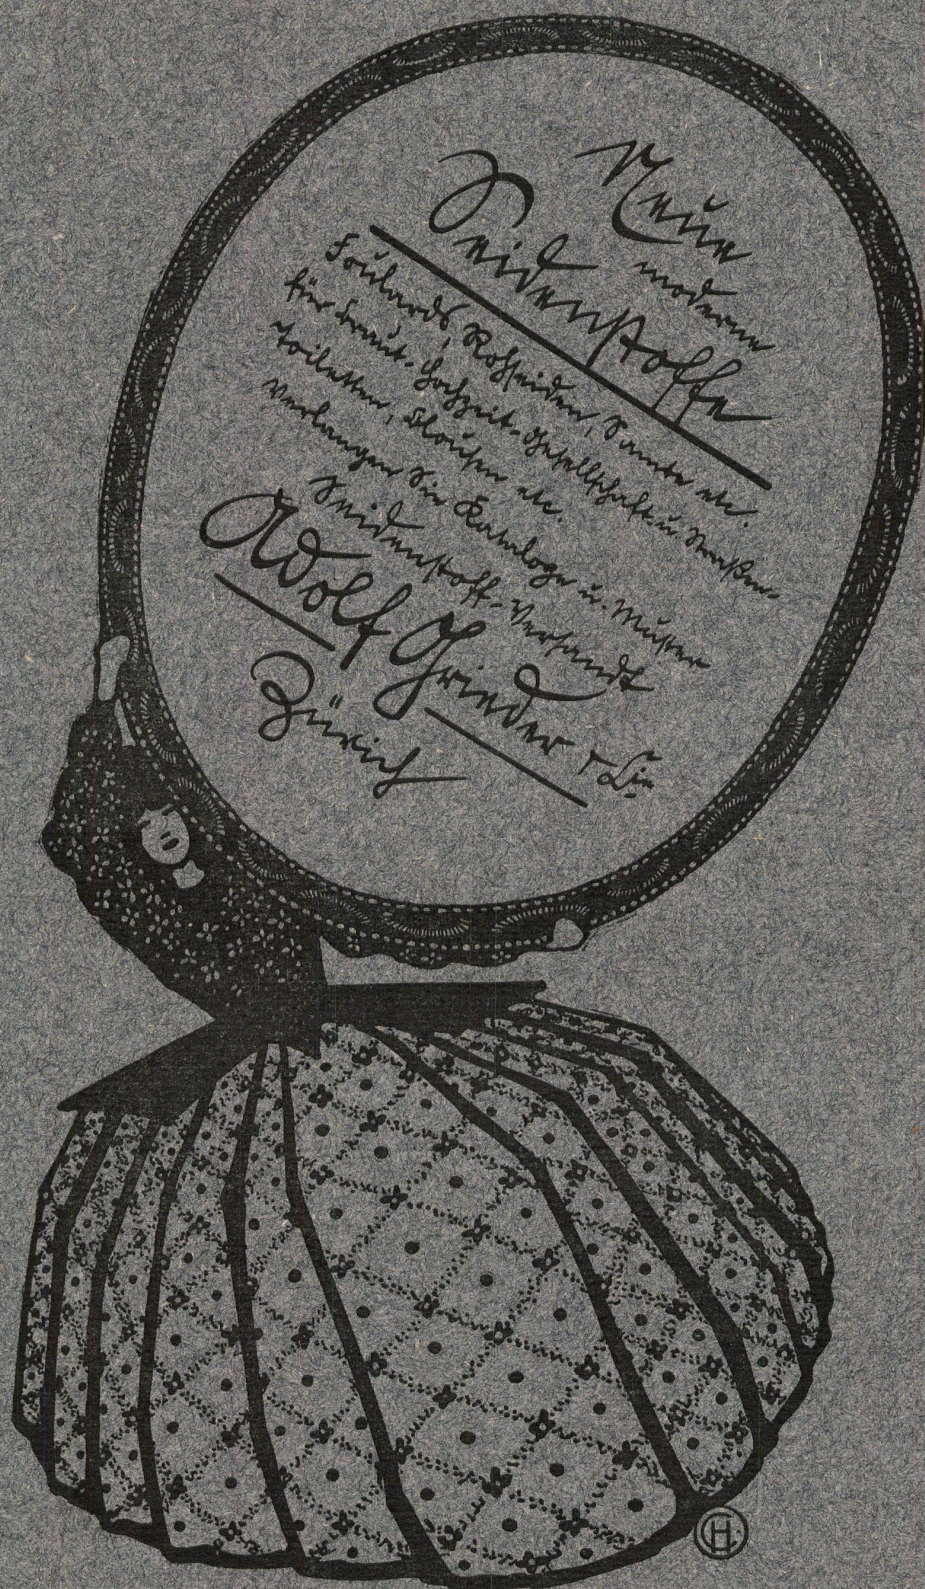 Neue
moderne
Seidenstoffe
Foulards, Rohseiden, Samte etc.
für Braut- Hochzeit- Gesellschaft- u. Straßen-
toiletten, Blousen etc.
Verlangen Sie Kataloge u. Muster
Seidenstoff-Versandt
Adolf Grieder & Cie
Zürich
H.